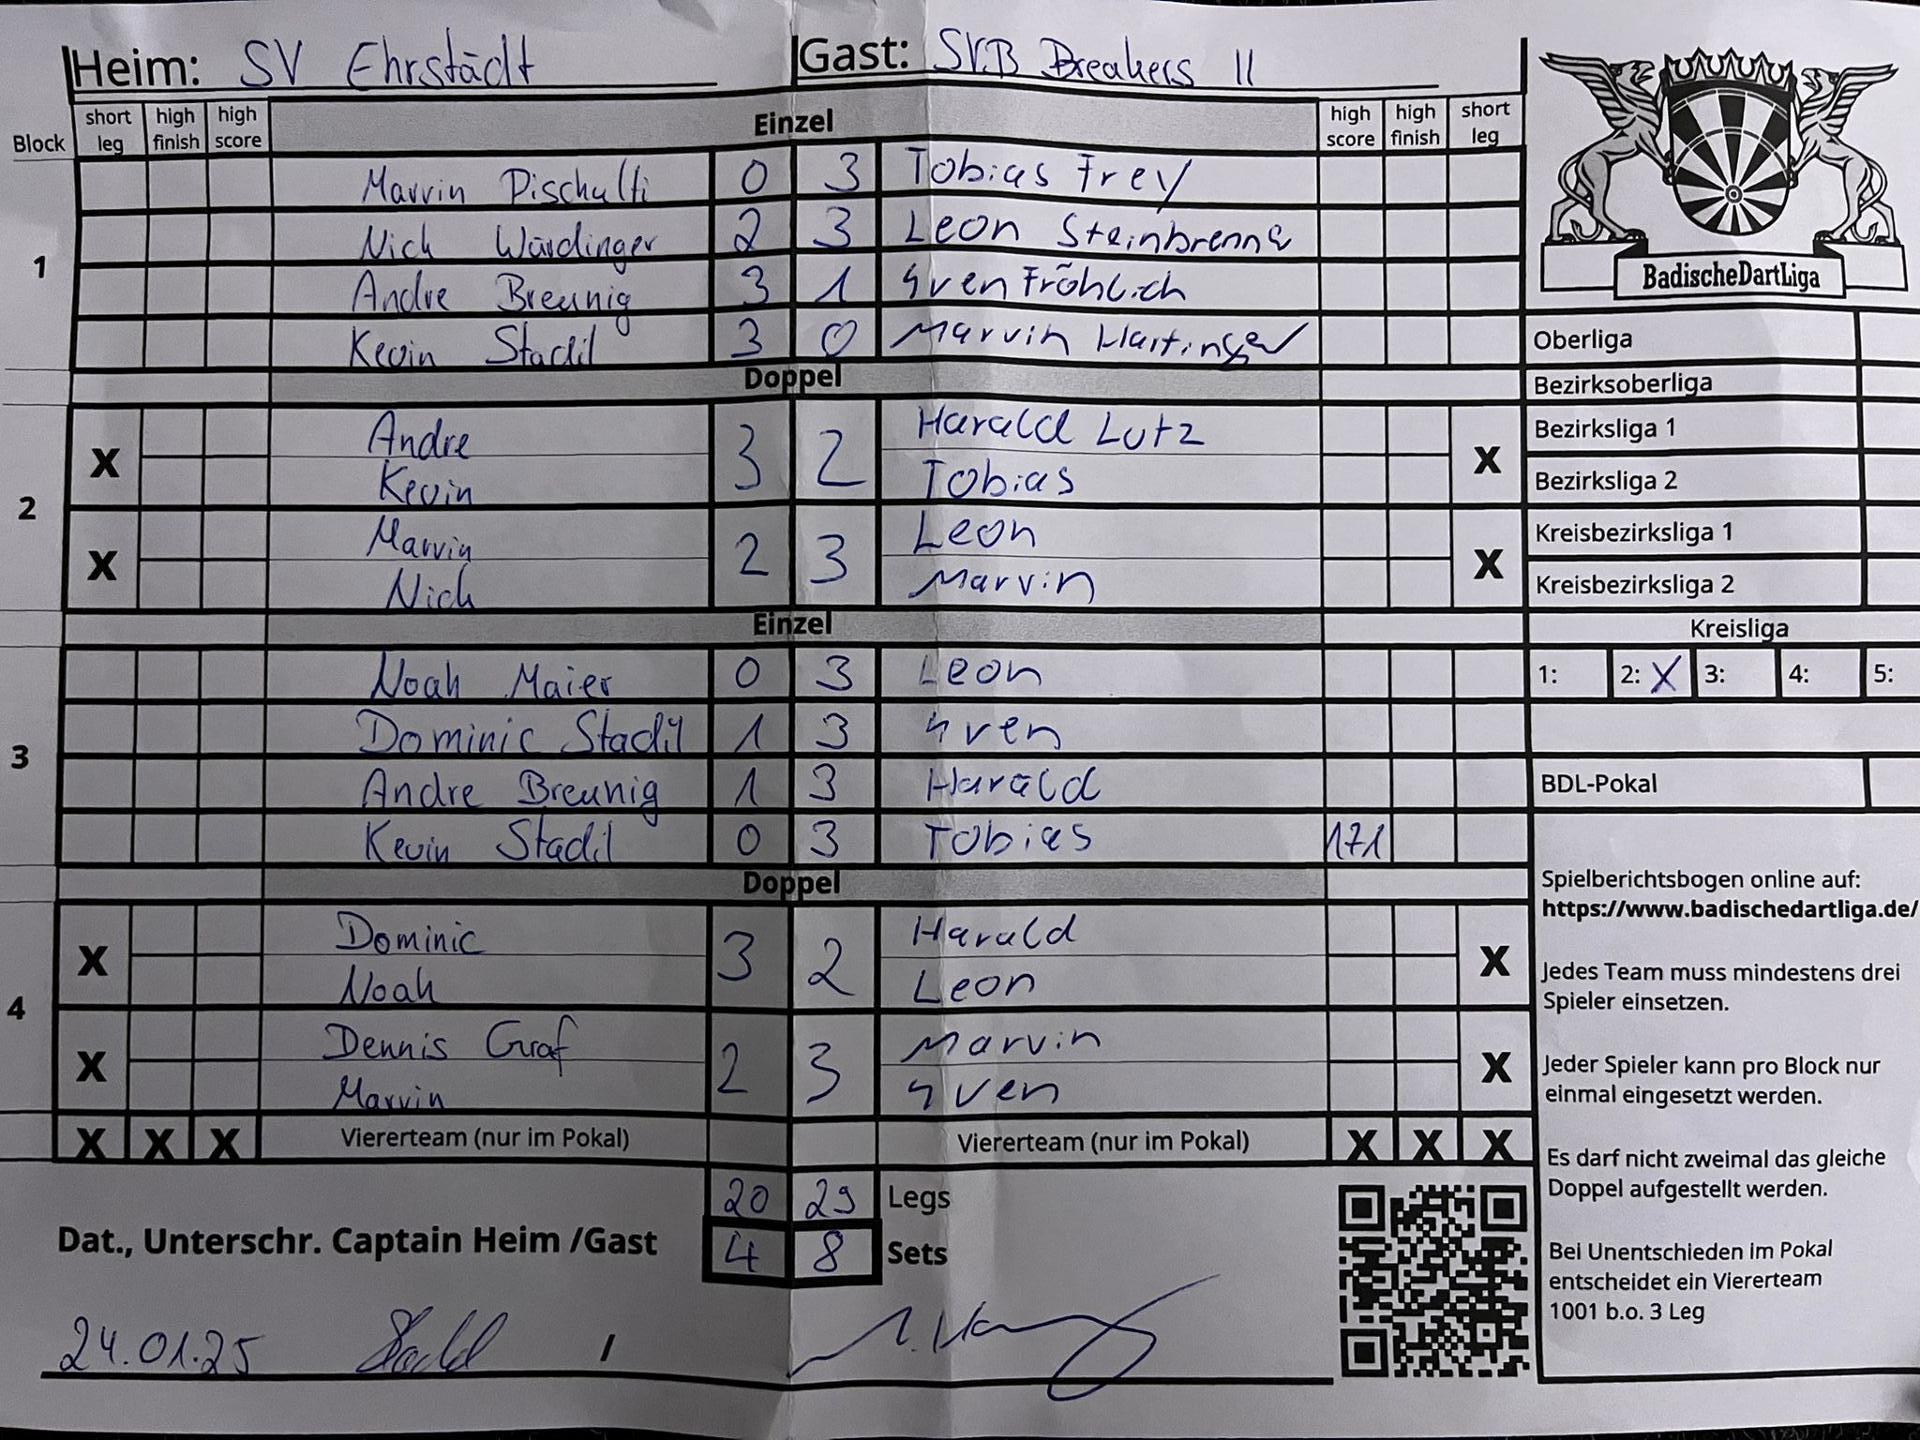 Heim: SV Ehrstädt Gast: SVB Breakers II
Block short leg high finish high score Einzel high score high finish short leg
1
Marvin Pischulti 0 3 Tobias Frey
Nich Wärdinger 2 3 Leon Steinbrenne
Andre Breunig 3 1 Sven Fröhlich
Kevin Stadil 3 0 Marvin Hartinger
Doppel
2
X Andre Kevin 3 2 Harald Lutz Tobias X
X Marvin Nich 2 3 Leon Marvin X
Einzel
3
Noah Maier 0 3 Leon
Dominic Stadil 1 3 Sven
Andre Breunig 1 3 Harald
Kevin Stadil 0 3 Tobias 171
Doppel
4
X Dominic Noah 3 2 Harald Leon X
X Dennis Graf Marvin 2 3 Marvin Sven X
X X X Viererteam (nur im Pokal) Viererteam (nur im Pokal) X X X
20 29 Legs
Dat., Unterschr. Captain Heim /Gast 4 8 Sets
24.01.25 /
BadischeDartLiga
Oberliga
Bezirksoberliga
Bezirksliga 1
Bezirksliga 2
Kreisbezirksliga 1
Kreisbezirksliga 2
Kreisliga
1: 2: X 3: 4: 5:
BDL-Pokal
Spielberichtsbogen online auf:
https://www.badischedartliga.de/
Jedes Team muss mindestens drei
Spieler einsetzen.
Jeder Spieler kann pro Block nur
einmal eingesetzt werden.
Es darf nicht zweimal das gleiche
Doppel aufgestellt werden.
Bei Unentschieden im Pokal
entscheidet ein Viererteam
1001 b.o. 3 Leg